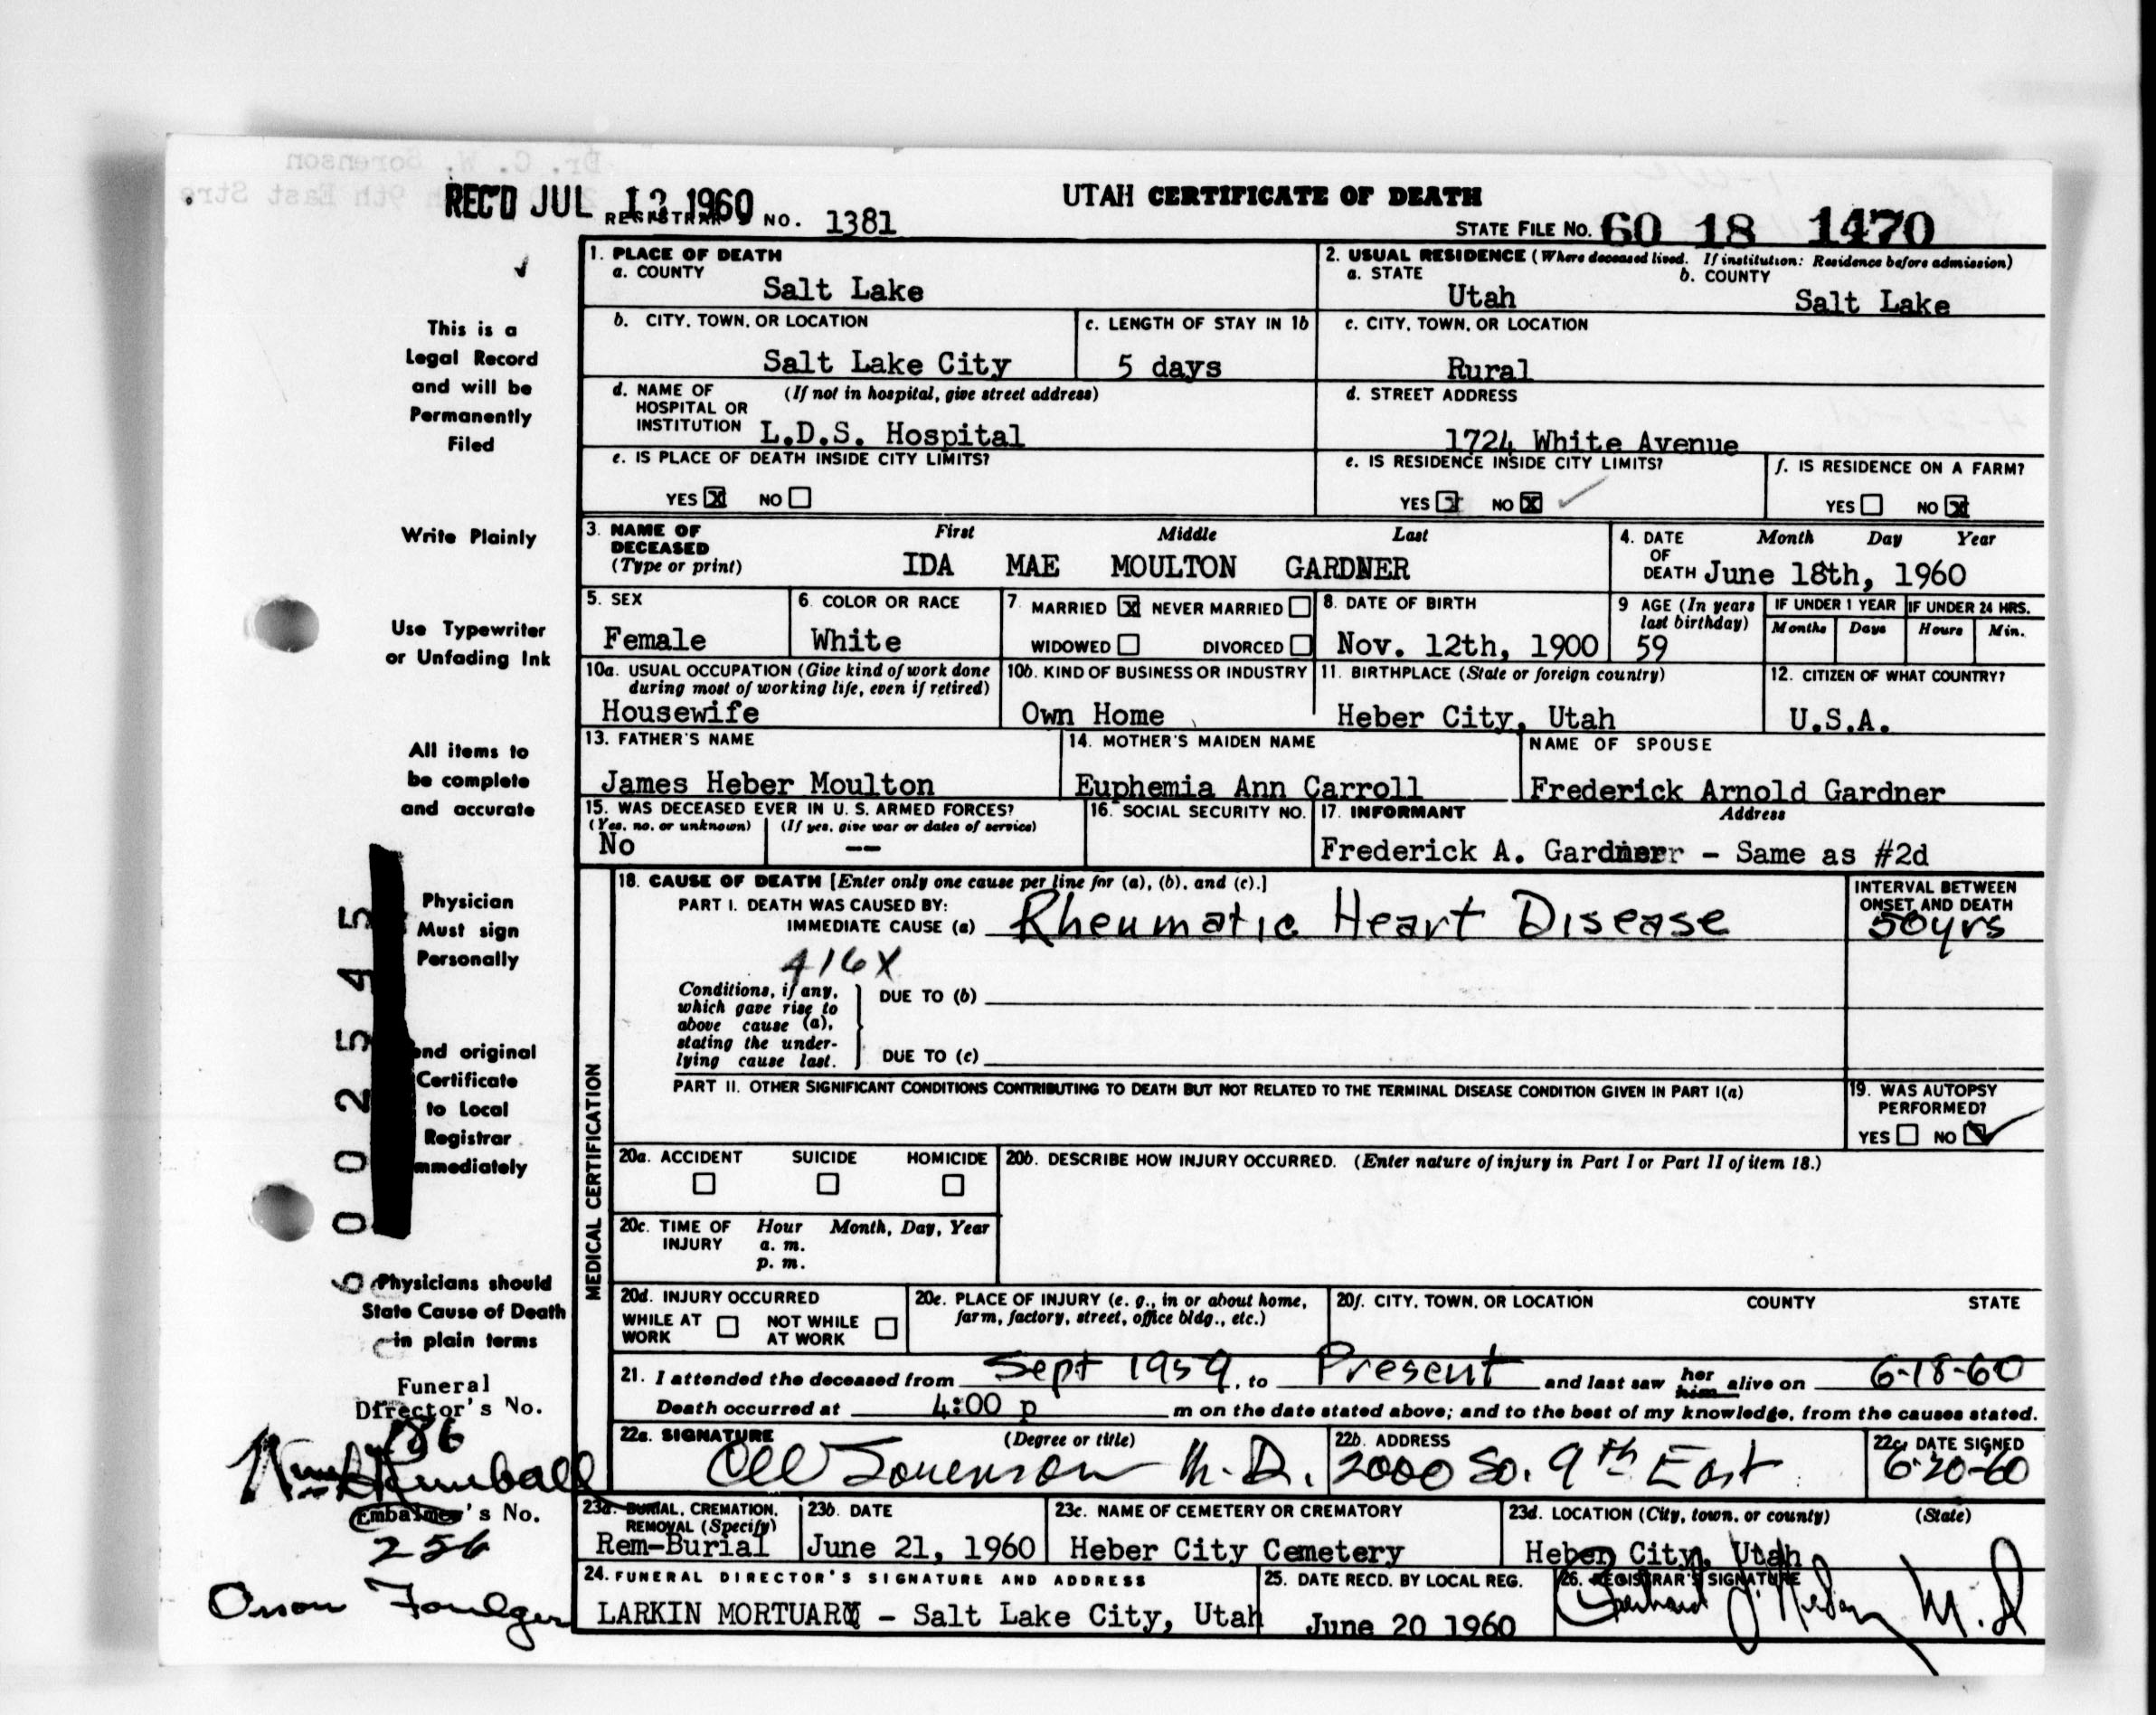 Dr. C. W. Sorenson
9th East Stre
REC'D JUL 12 1960
REGISTRAR'S NO. 1381
UTAH CERTIFICATE OF DEATH
STATE FILE NO. 60 18 1470
This is a
Legal Record
and will be
Permanently
Filed
Write Plainly
Use Typewriter
or Unfading Ink
All items to
be complete
and accurate
Physician
Must sign
Personally
end original
Certificate
to Local
Registrar
mmediately
6 0 0 2 5 4 5
Physicians should
State Cause of Death
in plain terms
Funeral
Director's No.
186
Kimball
Embalmer's No.
256
Orson Foulger
1. PLACE OF DEATH
a. COUNTY
Salt Lake
2. USUAL RESIDENCE (Where deceased lived. If institution: Residence before admission)
a. STATE
Utah
b. COUNTY
Salt Lake
b. CITY, TOWN, OR LOCATION
Salt Lake City
c. LENGTH OF STAY IN 1b
5 days
c. CITY, TOWN, OR LOCATION
Rural
d. NAME OF (If not in hospital, give street address)
HOSPITAL OR
INSTITUTION L.D.S. Hospital
d. STREET ADDRESS
1724 White Avenue
e. IS PLACE OF DEATH INSIDE CITY LIMITS?
YES X NO
e. IS RESIDENCE INSIDE CITY LIMITS?
YES X NO X
f. IS RESIDENCE ON A FARM?
YES NO X
3. NAME OF DECEASED
(Type or print)
First Middle Last
IDA MAE MOULTON GARDNER
4. DATE OF DEATH Month Day Year
June 18th, 1960
5. SEX
Female
6. COLOR OR RACE
White
7. MARRIED X NEVER MARRIED
WIDOWED DIVORCED
8. DATE OF BIRTH
Nov. 12th, 1900
9 AGE (In years last birthday)
59
IF UNDER 1 YEAR
Months Days
IF UNDER 24 HRS.
Hours Min.
10a. USUAL OCCUPATION (Give kind of work done
during most of working life, even if retired)
Housewife
10b. KIND OF BUSINESS OR INDUSTRY
Own Home
11. BIRTHPLACE (State or foreign country)
Heber City, Utah
12. CITIZEN OF WHAT COUNTRY?
U.S.A.
13. FATHER'S NAME
James Heber Moulton
14. MOTHER'S MAIDEN NAME
Euphemia Ann Carroll
NAME OF SPOUSE
Frederick Arnold Gardner
15. WAS DECEASED EVER IN U. S. ARMED FORCES?
(Yes, no, or unknown) (If yes, give war or dates of service)
No --
16. SOCIAL SECURITY NO.
17. INFORMANT Address
Frederick A. Gardner - Same as #2d
MEDICAL CERTIFICATION
18. CAUSE OF DEATH [Enter only one cause per line for (a), (b), and (c).]
PART I. DEATH WAS CAUSED BY:
IMMEDIATE CAUSE (a) Rheumatic Heart Disease
INTERVAL BETWEEN
ONSET AND DEATH
50 yrs
416X
Conditions, if any,
which gave rise to
above cause (a),
stating the under-
lying cause last.
DUE TO (b)
DUE TO (c)
PART II. OTHER SIGNIFICANT CONDITIONS CONTRIBUTING TO DEATH BUT NOT RELATED TO THE TERMINAL DISEASE CONDITION GIVEN IN PART I(a)
19. WAS AUTOPSY
PERFORMED?
YES NO
20a. ACCIDENT SUICIDE HOMICIDE
20b. DESCRIBE HOW INJURY OCCURRED. (Enter nature of injury in Part I or Part II of item 18.)
20c. TIME OF INJURY Hour Month, Day, Year
a. m.
p. m.
20d. INJURY OCCURRED
WHILE AT WORK NOT WHILE AT WORK
20e. PLACE OF INJURY (e. g., in or about home,
farm, factory, street, office bldg., etc.)
20f. CITY, TOWN, OR LOCATION COUNTY STATE
21. I attended the deceased from Sept 1959, to Present and last saw her him alive on 6-18-60
Death occurred at 4:00 p m on the date stated above; and to the best of my knowledge, from the causes stated.
22a. SIGNATURE (Degree or title)
CW Sorenson M.D.
22b. ADDRESS
2000 So. 9th East
22c. DATE SIGNED
6-20-60
23a. BURIAL, CREMATION,
REMOVAL (Specify)
Rem-Burial
23b. DATE
June 21, 1960
23c. NAME OF CEMETERY OR CREMATORY
Heber City Cemetery
23d. LOCATION (City, town, or county) (State)
Heber City, Utah
24. FUNERAL DIRECTOR'S SIGNATURE AND ADDRESS
LARKIN MORTUARY - Salt Lake City, Utah
25. DATE RECD. BY LOCAL REG.
June 20 1960
26. REGISTRAR'S SIGNATURE
M.D